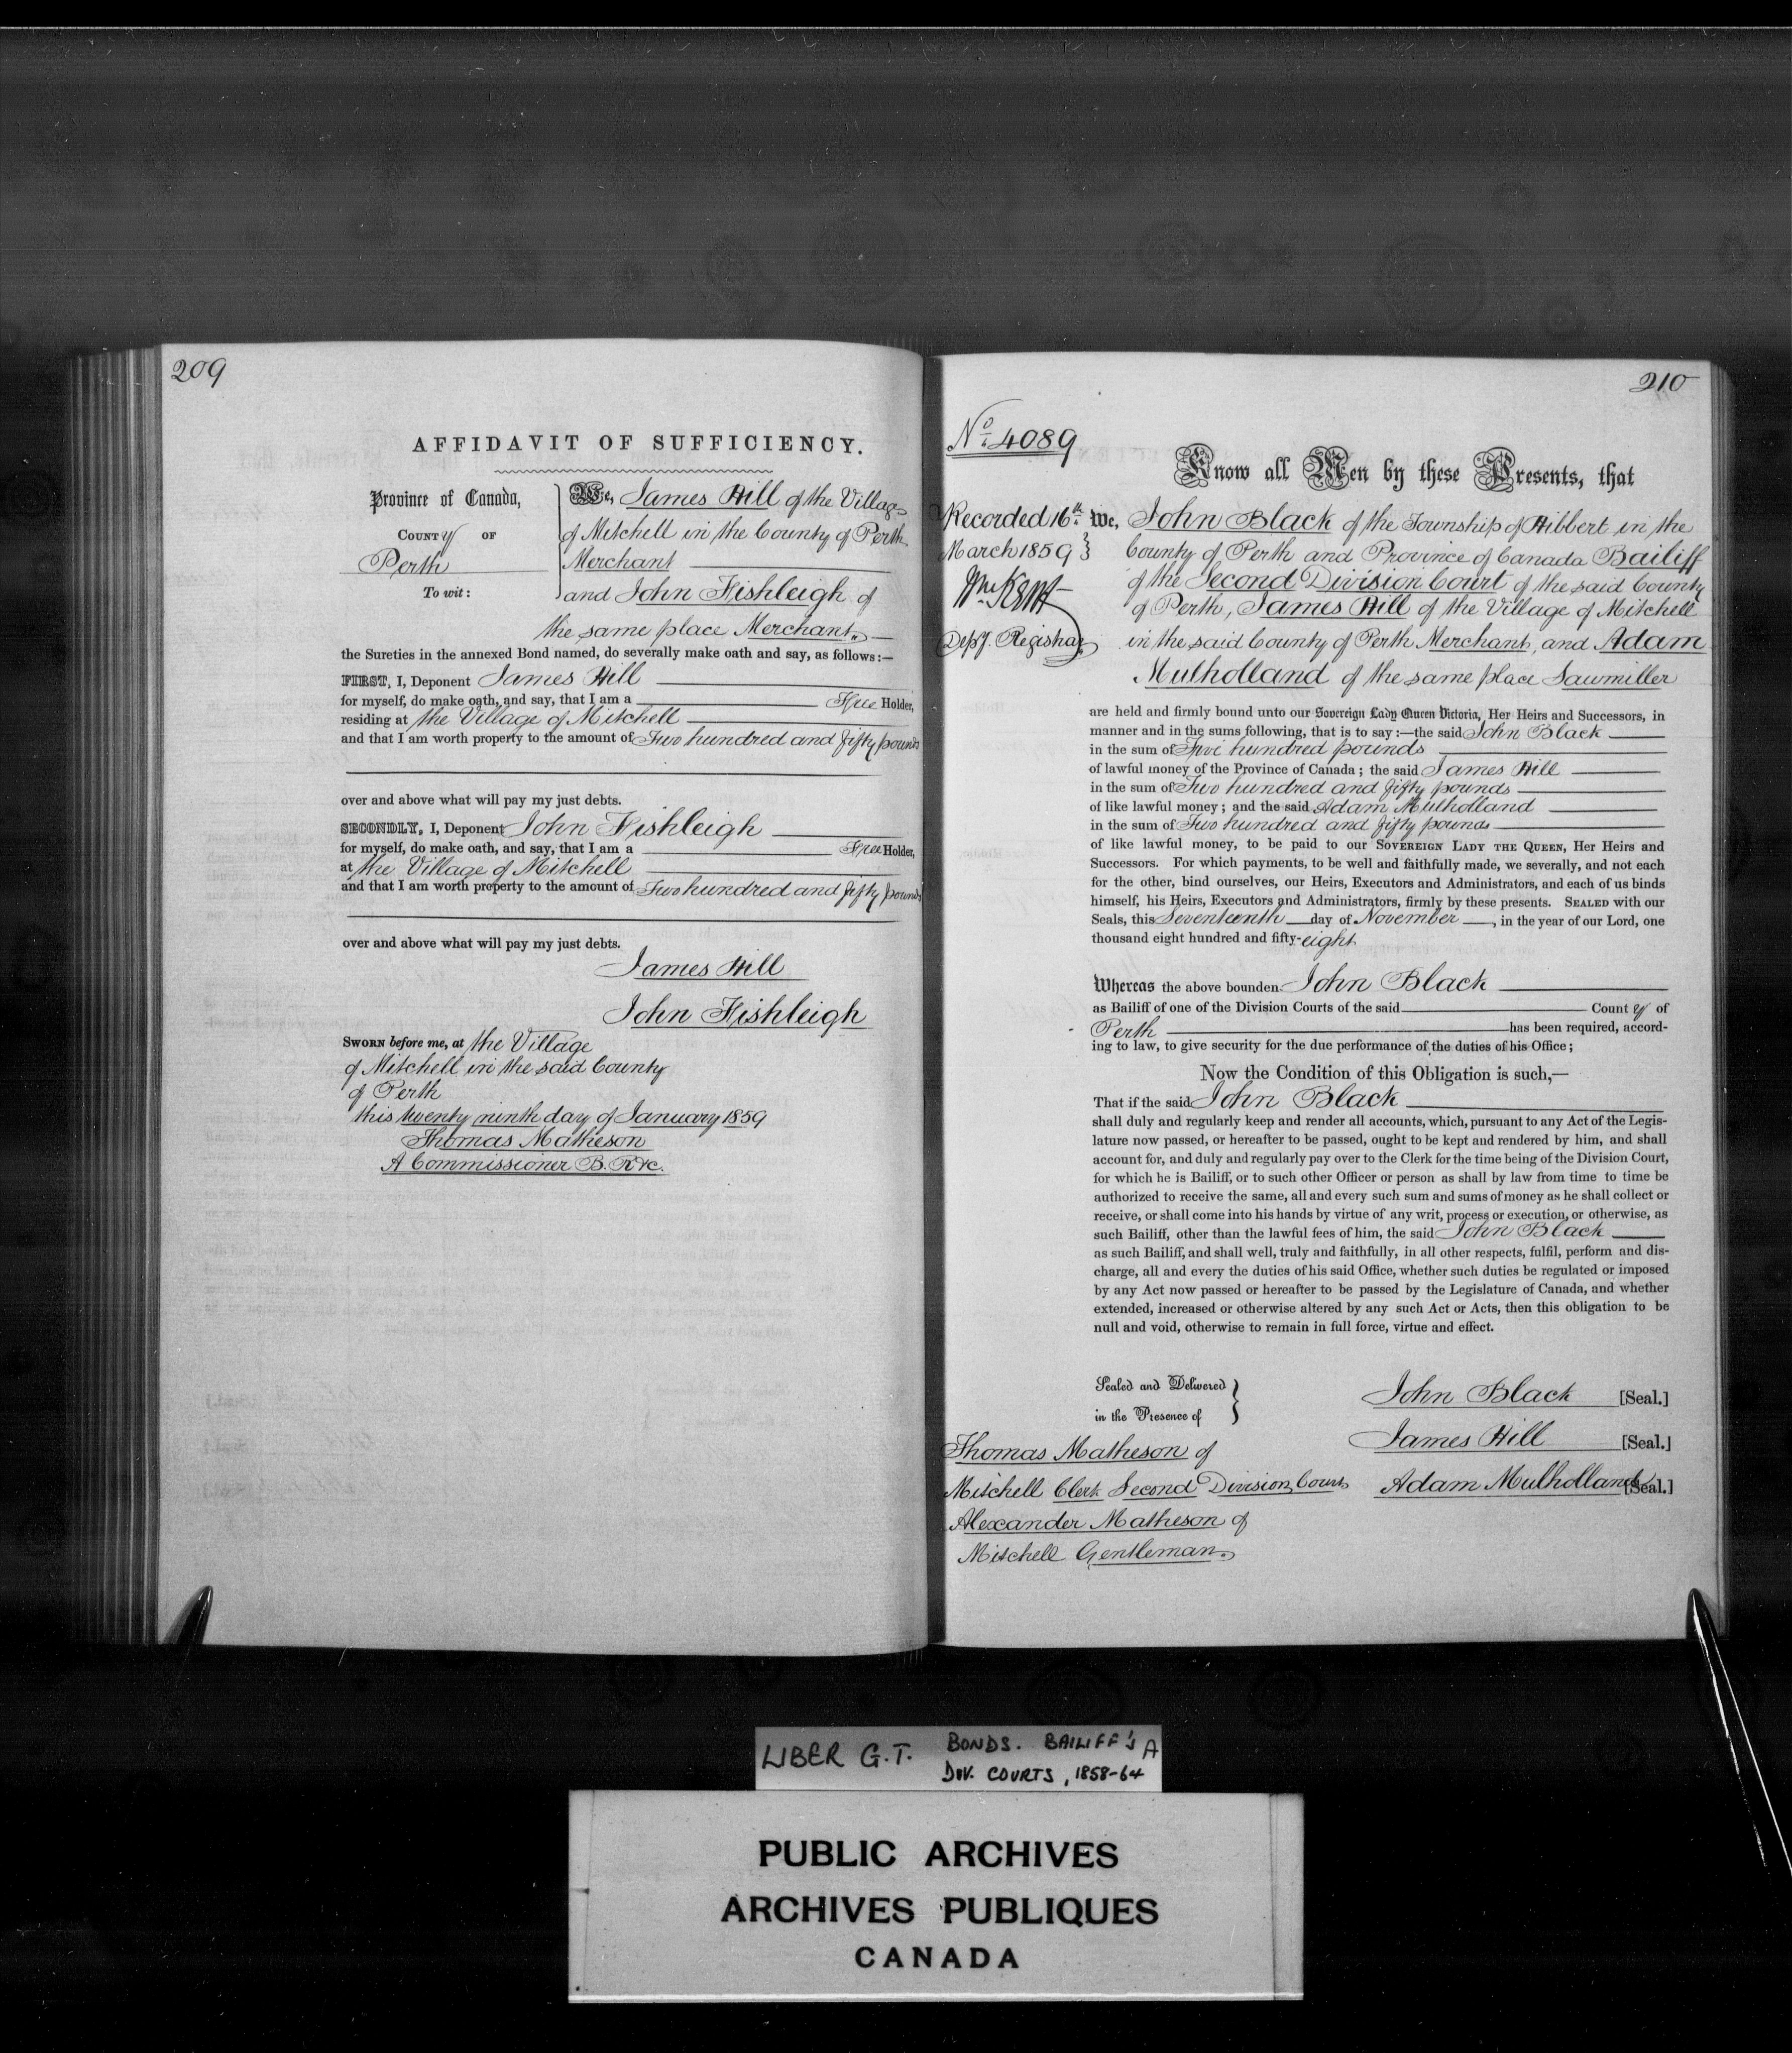 209
AFFIDAVIT OF SUFFICIENCY.
Province of Canada,
COUNTy OF
Perth
To wit:
We, James Hill of the Village
of Mitchell in the County of Perth
Merchant
and John Fishleigh of
the same place Merchant
the Sureties in the annexed Bond named, do severally make oath and say, as follows:—
FIRST, I, Deponent James Hill
for myself, do make oath, and say, that I am a Free Holder,
residing at the Village of Mitchell
and that I am worth property to the amount of Two hundred and fifty pounds
over and above what will pay my just debts.
SECONDLY, I, Deponent John Fishleigh
for myself, do make oath, and say, that I am a Free Holder,
at the Village of Mitchell
and that I am worth property to the amount of Two hundred and fifty pounds
over and above what will pay my just debts.
James Hill
John Fishleigh
SWORN before me, at the Village
of Mitchell in the said County
of Perth
this twenty ninth day of January 1859
Thomas Matheson
A Commissioner B. R &c.
210
No. 4089
Know all Men by these Presents, that
Recorded 16th
March 1859
Wm Kent
Depy. Registrar
We, John Black of the Township of Hibbert in the
County of Perth and Province of Canada Bailiff
of the Second Division Court of the said County
of Perth, James Hill of the Village of Mitchell
in the said County of Perth Merchant, and Adam
Mulholland of the same place Sawmiller
are held and firmly bound unto our Sovereign Lady Queen Victoria, Her Heirs and Successors, in
manner and in the sums following, that is to say:—the said John Black
in the sum of Five hundred pounds
of lawful money of the Province of Canada; the said James Hill
in the sum of Two hundred and fifty pounds
of like lawful money; and the said Adam Mulholland
in the sum of Two hundred and fifty pounds
of like lawful money, to be paid to our SOVEREIGN LADY THE QUEEN, Her Heirs and
Successors. For which payments, to be well and faithfully made, we severally, and not each
for the other, bind ourselves, our Heirs, Executors and Administrators, and each of us binds
himself, his Heirs, Executors and Administrators, firmly by these presents. SEALED with our
Seals, this Seventeenth day of November, in the year of our Lord, one
thousand eight hundred and fifty-eight
Whereas the above bounden John Black
as Bailiff of one of the Division Courts of the said County of
Perth has been required, accord-
ing to law, to give security for the due performance of the duties of his Office;
Now the Condition of this Obligation is such,—
That if the said John Black
shall duly and regularly keep and render all accounts, which, pursuant to any Act of the Legis-
lature now passed, or hereafter to be passed, ought to be kept and rendered by him, and shall
account for, and duly and regularly pay over to the Clerk for the time being of the Division Court,
for which he is Bailiff, or to such other Officer or person as shall by law from time to time be
authorized to receive the same, all and every such sum and sums of money as he shall collect or
receive, or shall come into his hands by virtue of any writ, process or execution, or otherwise, as
such Bailiff, other than the lawful fees of him, the said John Black
as such Bailiff, and shall well, truly and faithfully, in all other respects, fulfil, perform and dis-
charge, all and every the duties of his said Office, whether such duties be regulated or imposed
by any Act now passed or hereafter to be passed by the Legislature of Canada, and whether
extended, increased or otherwise altered by any such Act or Acts, then this obligation to be
null and void, otherwise to remain in full force, virtue and effect.
Sealed and Delivered
in the Presence of
Thomas Matheson of
Mitchell Clerk Second Division Court
Alexander Matheson of
Mitchell Gentleman.
John Black [Seal.]
James Hill [Seal.]
Adam Mulholland [Seal.]
LIBER G.T. BONDS. BAILIFF'S A
DIV. COURTS, 1858-64
PUBLIC ARCHIVES
ARCHIVES PUBLIQUES
CANADA